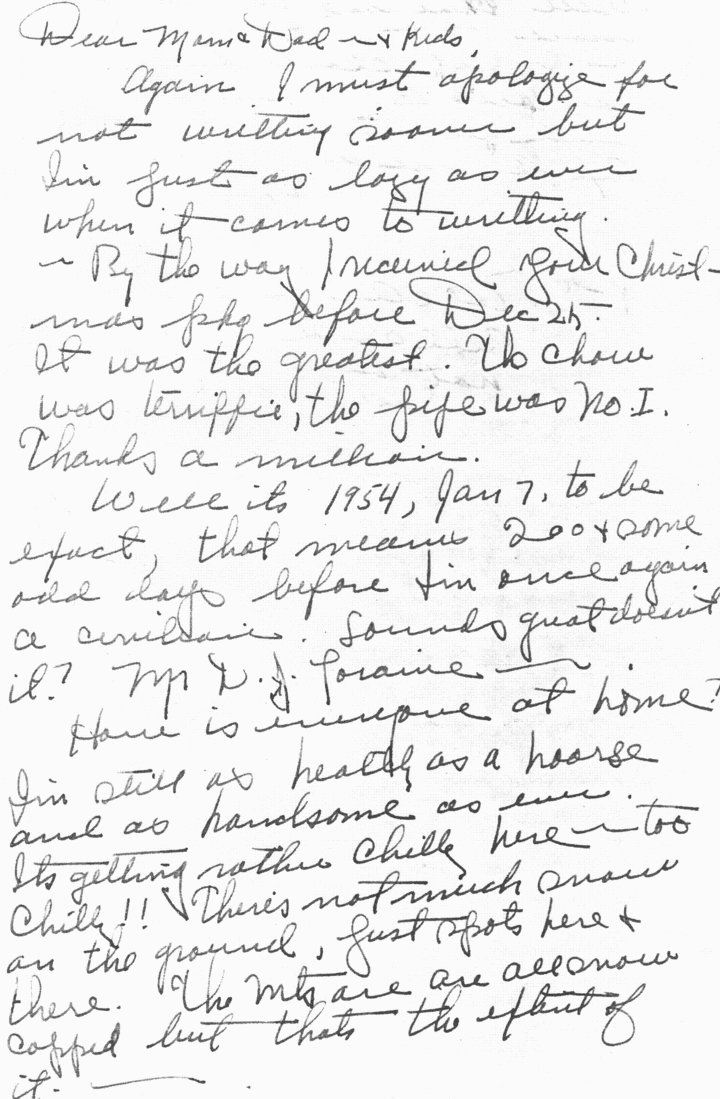 Dear Mom & Dad ~ & Kids,
Again I must apologize for
not writting sooner but
I'm just as lazy as ever
when it comes to writting.
~ By the way I received your Christ-
mas pkg before Dec 25.
It was the greatest. The chow
was terriffic, the pipe was No. I.
Thanks a million.
Well its 1954, Jan 7, to be
exact, that means 200 & some
odd days before I'm once again
a civilian. Sounds great doesn't
it? Mr D. J. Loraine —
How is everyone at home?
I'm still as healthy as a hoarse
and as handsome as ever.
Its getting rather chilly here ~ too
Chilly!! There's not much snow
on the ground, just spots here &
there. The Mts are are all snow
capped but thats the extent of
it. —